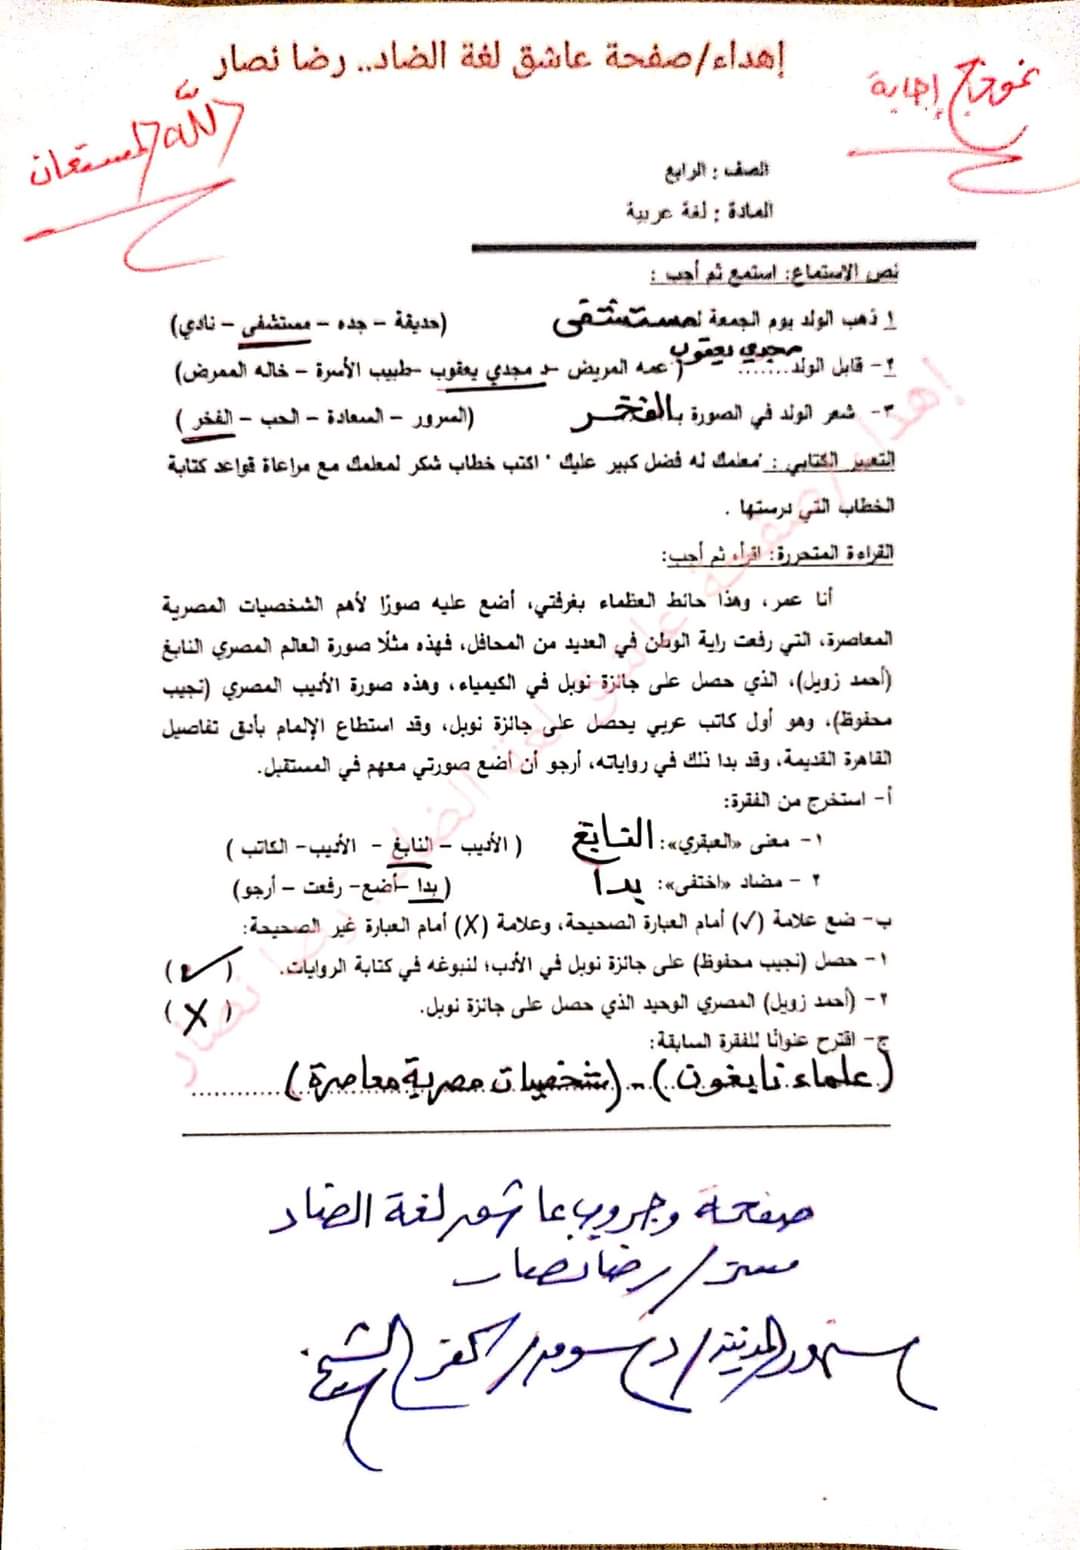 إهداء/صفحة عاشق لغة الضاد.. رضا نصار
نموذج إجابة
الله المستعان
الصف : الرابع
المادة : لغة عربية
نص الاستماع: استمع ثم أجب :
١ ذهب الولد يوم الجمعة لمستشفى (حديقة – جده – مستشفى – نادي)
٢- قابل الولد....... مجدي يعقوب ( عمه المريض –د مجدي يعقوب –طبيب الأسرة – خاله الممرض)
٣- شعر الولد في الصورة بالفخر (السرور – السعادة – الحب – الفخر )
التعبير الكتابي : "معلمك له فضل كبير عليك " اكتب خطاب شكر لمعلمك مع مراعاة قواعد كتابة
الخطاب التي درستها .
القراءة المتحررة: اقرأ ثم أجب:
أنا عمر، وهذا حائط العظماء بغرفتي، أضع عليه صورًا لأهم الشخصيات المصرية
المعاصرة، التي رفعت راية الوطن في العديد من المحافل، فهذه مثلًا صورة العالم المصري النابغ
(أحمد زويل)، الذي حصل على جائزة نوبل في الكيمياء، وهذه صورة الأديب المصري (نجيب
محفوظ)، وهو أول كاتب عربي يحصل على جائزة نوبل، وقد استطاع الإلمام بأدق تفاصيل
القاهرة القديمة، وقد بدا ذلك في رواياته، أرجو أن أضع صورتي معهم في المستقبل.
أ- استخرج من الفقرة:
١- معنى «العبقري»: النابغ ( الأديب – النابغ – الأديب– الكاتب )
٢ - مضاد «اختفى»: بدا ( بدا –أضع– رفعت – أرجو)
ب- ضع علامة (✓) أمام العبارة الصحيحة، وعلامة (X) أمام العبارة غير الصحيحة:
١- حصل (نجيب محفوظ) على جائزة نوبل في الأدب؛ لنبوغه في كتابة الروايات. (✓)
٢- (أحمد زويل) المصري الوحيد الذي حصل على جائزة نوبل. (X)
ج- اقترح عنوانًا للفقرة السابقة:
(علماء نابغون) - (شخصيات مصرية معاصرة)
صفحة وجروب عاشق لغة الضاد
مستر/ رضا نصار
سنهور المدينة/ دسوق/ كفر الشيخ
إهداء/صفحة عاشق لغة الضاد.. رضا نصار